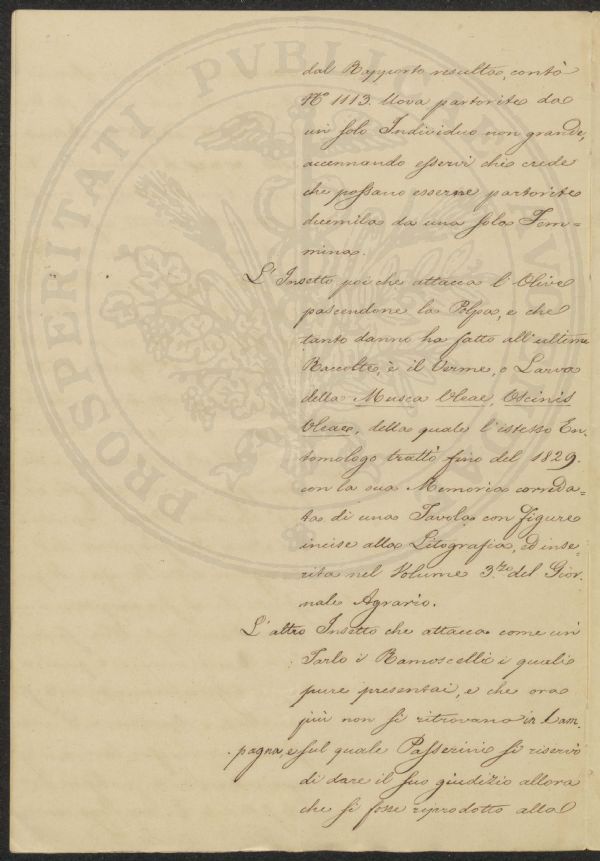 dal Rapporto resulta, contò
N.º 1113. Uova partorite da
un solo Individuo non grande,
accennando esservi chi crede
che possano esserne partorite
diecimila da una sola Fem=
mina.
L'Insetto poi che attacca l'Olive
pascendone la Polpa, e che
tanto danno ha fatto all'ultime
Raccolte, è il Verme, o Larva
della Musca Oleae, Oscinis
Oleae, della quale l'istesso En=
tomologo trattò fino del 1829.
con la sua Memoria correda=
ta di una Tavola con figure
incise alla Litografia, ed inse=
rita nel Volume 3.zo del Gior=
nale Agrario.
L'altro Insetto che attacca come un
Tarlo i Ramoscelli i quali
pure presentai, e che ora
più non si ritrovano in Cam=
pagna, e sul quale Passerini si riservò
di dare il suo giudizio allora
che si fosse riprodotto alla
PROSPERITATI PVBLICAE